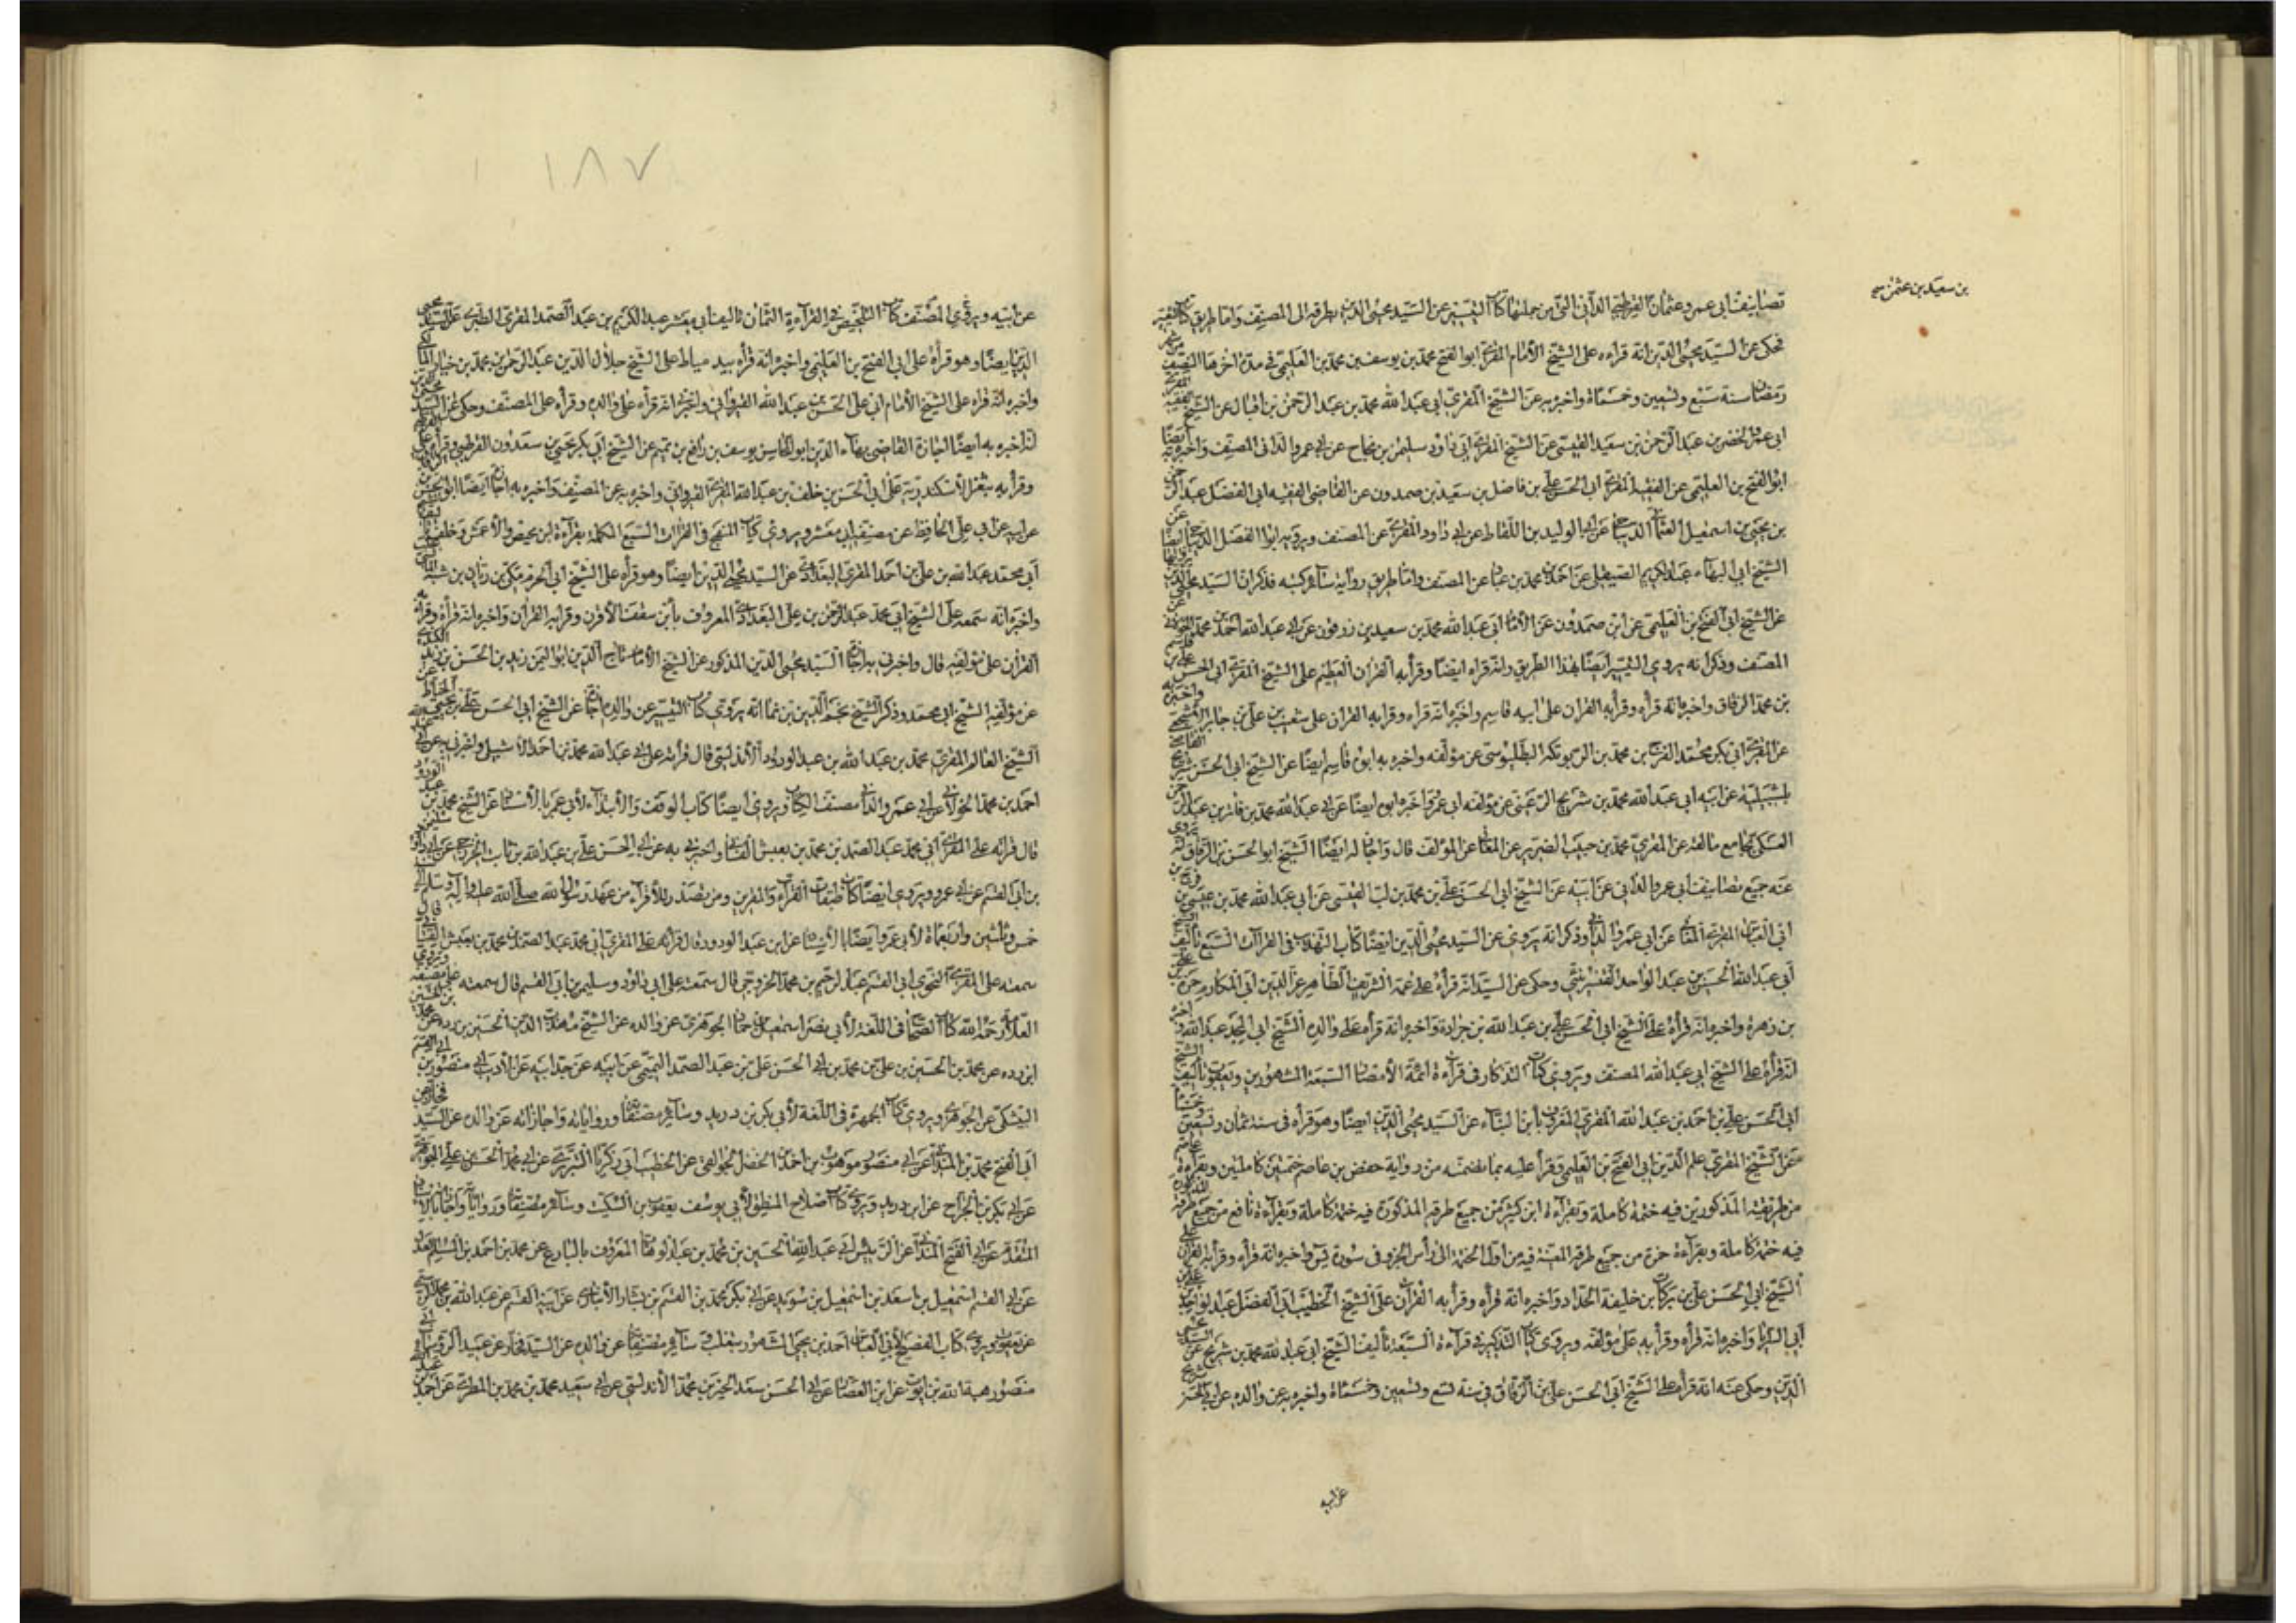 تصانيف ابي عمرو عثمان القرطبي الداني التي من جملتها كتاب التيسير عن السيد محيي الدين بطرقه الى المصنف واما طريق كتاب التيسير
بن سعيد بن عثمن
فحكى عن السيد محيي الدين انه قراءه على الشيخ الامام المقرئ ابو الفتح محمد بن يوسف بن محمد بن العليمي في مدة اخرها النصف من شهر
رمضان سنة سبع وتسعين وخمسمائة واخبره به عن الشيخ المقرئ ابي عبد الله محمد بن عبد الرحمن بن اقبال عن الشيخ
ابي عمرو الخضر بن عبد الرحمن بن سعيد القيسي عن الشيخ المقرئ ابي داود سليمن بن نجاح عن ابي عمرو الداني المصنف واخبره به ايضا
ابو الفتح بن العليمي عن الفقيه المقرئ ابي الحسن علي بن فاضل بن سعيد بن صمدون عن القاضي الفقيه ابي الفضل عبد الرحمن
بن يحيى بن اسمعيل العثماني الديباجي عن ابي الوليد بن اللقاط عن ابي داود المقرئ عن المصنف ويرويه ابو الفضل الديباجي ايضا عن
الشيخ ابي البهاء عبد الكريم الصيقلي عن احمد بن محمد بن عن المصنف واما طريق رواية سائر كتبه فذكر ان السيد محيي الدين
عن الشيخ ابي الفتح بن العليمي عن ابن صمدون عن الامام ابي عبد الله محمد بن سعيد بن زرقون عن ابي عبد الله احمد بن محمد الخولاني عن
المصنف وذكر انه يروي التيسير ايضا بهذا الطريق وانه قراه ايضا وقرأ به القران العظيم على الشيخ المقرئ ابي الحسن علي بن قاسم
بن محمد الزقاق واخبره انه قرأه وقرأ به القران على ابيه قاسم واخبره انه قراه وقرا به القران على شعيب بن علي بن جابر الاشجعي واخبره به
عن المقرئ ابي بكر محمد بن المفرج بن محمد بن الربويكه البطليوسي عن مؤلفه واخبره به ابوه قاسم ايضا عن الشيخ ابي الحسن شريح القاضي
باشبيلية عن ابيه ابي عبد الله محمد بن شريح الرعيني عن مؤلفه ابي عمرو واخبره ابوه ايضا عن ابي عبد الله محمد بن فائز بن عبد الرحمن
العكي بجامع مالقه عن المقرئ محمد بن حبيب الضرير عن المغامي عن المؤلف قال واجاز له ايضا الشيخ ابو الحسن بن الزقاق
عنه جميع تصانيف ابي عمرو الداني عن ابيه عن الشيخ ابي الحسن علي بن محمد بن لب القيسي عن ابي عبد الله محمد بن عيسى بن فرج
ابي العباس المقرئ المغامي عن ابي عمرو الداني وذكر انه يروي عن السيد محيي الدين ايضا كتاب التهذيب في القراآت السبع تأليف الشيخ
ابي عبد الله الحسين بن عبد الواحد القنسريني وحكى عن السيد انه قرأه على عمه الشريف الطاهر عز الدين ابي المكارم حمزة بن علي
بن زهرة واخبره انه قرأه على الشيخ ابي الحسن علي بن عبد الله بن جرادة واخبره انه قرأه على والده الشيخ ابي المجد عبد الله واخبره
انه قرأه على الشيخ ابي عبد الله المصنف ويروي كتاب التذكار في قراءة ائمة الامصار السبعة المشهورين ويعقوب تأليف الشيخ
ابي الحسن علي بن احمد بن عبد الله المقرئ المعروف بابن البناء عن السيد محيي الدين ايضا وهو قرأه في سنة ثمان وتسعين وخمسمائة
على الشيخ المقرئ علم الدين ابي الفتح بن العليمي وقرأ عليه بما تضمنه من رواية حفص بن عاصم ختمتين كاملتين وبقراءة عاصم
من طريقيه المذكورين فيه ختمة كاملة وبقراءة ابن كثير من جميع طرقه المذكورة فيه ختمة كاملة وبقراءة نافع من جميع طرقه المذكورة
فيه ختمة كاملة وبقراءة حمزة من جميع طرقه المبينة فيه من اول الختمة الى رأس الجزو في سورة يس واخبره انه قرأه وقرأ به القران على
الشيخ ابي الحسن علي بن بركات بن خليفة الحداد واخبره انه قرأه وقرأ به القرآن على الشيخ الخطيب ابي الفضل عبد الواحد بن علي
ابي السرايا واخبره انه قرأه وقرأ به على مؤلفه ويروي كتاب التذكير في قراءة السبعة تأليف الشيخ ابي عبد الله محمد بن شريح عن السيد محيي
الدين وحكى عنه انه قرأه على الشيخ ابي الحسن علي بن الزقاق في سنة تسع وتسعين وخمسمائة واخبره به عن والده عن ابي الحسن شريح
عن ابيه
١٨٧
عن ابيه ويروي المصنف كتاب التلخيص في القراءة الثمان تاليف ابي معشر عبد الكريم بن عبد الصمد المقرئ الطبري عن السيد محيي
الدين ايضا وهو قرأه على ابي الفتح بن العليمي واخبره انه قرأه بثغر دمياط على الشيخ جلال الدين عبد الرحمن بن محمد بن
واخبره انه قراه على الشيخ الامام ابي علي الحسن بن عبد الله القيرواني واخبره انه قرأه على والده وقرأه على المصنف وحكى عن السيد
انه اخبره به ايضا اجازة القاضي بهاء الدين ابو المحاسن يوسف بن رافع بن تميم عن الشيخ ابي بكر يحيى بن سعدون القرطبي
وقرأ به بثغر الاسكندرية على ابي الحسن بن خلف بن عبد الله المقرئ القيرواني واخبره به عن المصنف واخبره به اجازة ايضا ابو الحسن
عن ابيه عن ابي علي الحافظ عن مصنفه ابي معشر ويروي كتاب المنهج في القراات السبع المكملة بقراءة ابن محيص والاعمش وخلف
ابي محمد عبد الله بن علي بن احمد المقرئ البغدادي عن السيد محيي الدين ايضا وهو قرأه على الشيخ ابي الحرم مكي بن ريان بن شبه
واخبره انه سمعه على الشيخ ابي محمد عبد الرحمن بن علي البغدادي المعروف بابن سقف الاقرن وقرا به القران واخبره انه قرأه وقرأ به
القران على مؤلفه قال واخبرني به اجازة السيد محيي الدين المذكور عن الشيخ الامام تاج الدين ابو اليمن زيد بن الحسن بن زيد الكندي
عن مؤلفه الشيخ ابي محمد وذكر الشيخ نجيب الدين بن نما انه يروي كتاب التيسير عن والده اجازة عن الشيخ ابي الحسن علي بن يحيى الخياط
الشيخ العالم المقرئ محمد بن عبد الله بن عبد الودود الاندلسي قال قرأته على ابي عبد الله محمد بن احمد الاشبيلي واخبرني به عن ابي
احمد بن محمد الخولاني عن ابي عمرو الداني مصنف الكتاب ويروي ايضا كتاب الوقف والابتداء لابي عمرو بالاسناد عن الشيخ محمد بن عبد الودود
قال قراته على المقرئ ابي محمد عبد الصمد بن محمد بن يعيش الغساني واخبرني به عن ابي الحسن علي بن عبد الله بن ثابت الخزرجي عن ابي داود سليمن
بن ابي القسم عن ابي عمرو ويروي ايضا كتاب طبقات القرآء والمقرين ومن تصدر للاقراء من عهد رسول الله صلى الله عليه وآله وسلم الى
خمس وثلثين واربعمائة لابي عمرو ايضا بالاسناد عن ابن عبد الودود قال قرأته على المقرئ ابي محمد عبد الصمد بن محمد بن يعيش الغساني قال
سمعته على المقرئ النحوي ابي القسم عبد الرحيم بن محمد الخزرجي قال سمعته على ابي داود وسليمن بن ابي القسم قال سمعته على مصنفه ويروي
العلامة رحمه الله كتاب الصحاح في اللغة لابي نصر اسمعيل بن حماد الجوهري عن والده عن الشيخ مهذب الدين الحسين بن رده عن
ابن رده عن محمد بن الحسين بن علي بن محمد بن ابي الحسن علي بن عبد الصمد التميمي عن ابيه عن جد ابيه عن الاديب ابي منصور بن ابي القسم
البيشكي عن الجوهري ويروي كتاب الجمهرة في اللغة لابي بكر بن دريد وسائر مصنفاته ورواياته واجازاته عن والده عن السيد فخار عن
ابي الفتح محمد بن المندائي عن ابي منصور موهوب بن احمد بن الخضر الجواليقي عن الخطيب ابي زكريا التبريزي عن ابي محمد الحسن بن علي الجوهري
عن ابي بكر بن الجراح عن ابن دريد ويروي كتاب اصلاح المنطق لابي يوسف يعقوب بن السكيت وسائر مصنفاته ورواياته واجازاته بالاسناد
المتقدم عن ابي الفتح المندائي عن الرئيس ابي عبد الله الحسين بن محمد بن عبد الوهاب المعروف بالبارع عن محمد بن احمد بن المسلم المعدل
عن ابي القسم اسمعيل بن اسعد بن اسمعيل بن سويد عن ابي بكر محمد بن القسم بن بشار الانباري عن ابيه القسم عن عبد الله بن محمد الرستمي
عن يعقوب ويروي كتاب الفصيح لابي العباس احمد بن يحيى المشهور بثعلب وسائر مصنفاته عن والده عن السيد فخار عن عميد الرؤساء ابي
منصور هبة الله بن ايوب عن ابن العصار عن ابي الحسن سعد الخير بن محمد الاندلسي عن ابي سعيد محمد بن محمد بن المطرز عن احمد بن عبد